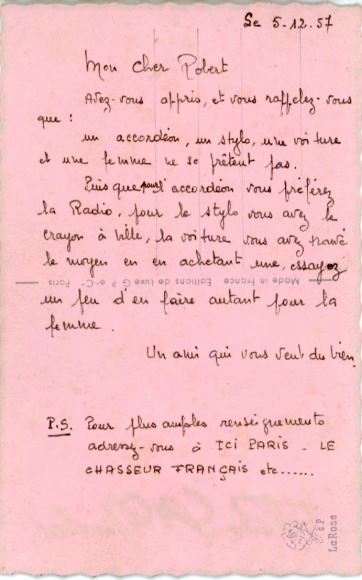 Le 5-12.57
Mon cher Robert
Avez-vous appris, et vous rappelez-vous
que :
un accordéon, un stylo, une voiture
et une femme ne se prêtent pas.
Puisque pour l'accordéon vous préférez
la Radio, pour le stylo vous avez le
crayon à bille, la voiture vous avez trouvé
le moyen en en achetant une, essayez
Made in France Editions de Luxe G P et Cie Paris
un peu d'en faire autant pour la
femme.
Un ami qui vous veut du bien
P.S. Pour plus amples renseignements
adressez-vous à ICI PARIS - LE
CHASSEUR FRANÇAIS etc......
LaRose